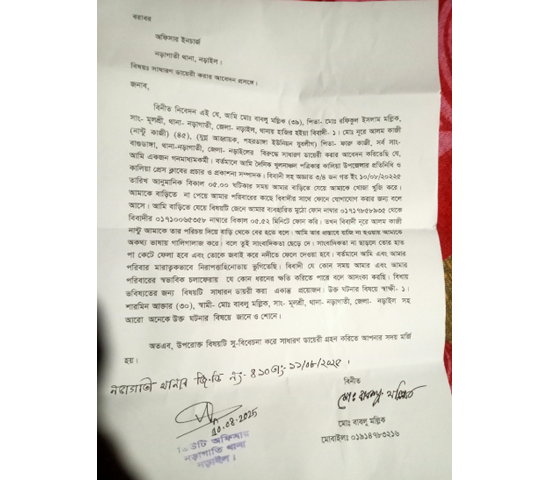 বরাবর
অফিসার ইনচার্জ
নড়াগাতী থানা, নড়াইল।
বিষয়ঃ সাধারণ ডায়েরী করার আবেদন প্রসঙ্গে।
জনাব,
বিনীত নিবেদন এই যে, আমি মোঃ বাবলু মল্লিক (৩৯), পিতা- মোঃ রফিকুল ইসলাম মল্লিক,
সাং- মূলশ্রী, থানা- নড়াগাতী, জেলা- নড়াইল, থানায় হাজির হইয়া বিবাদী- ১। মোঃ নুরে আলম কাজী
(নান্টু কাজী) (৪৫), (যুগ্ম আহ্বায়ক, পহরডাঙ্গা ইউনিয়ন যুবলীগ) পিতা- ফারু কাজী, সর্ব সাং-
বাগুডাঙ্গা, থানা-নড়াগাতী, জেলা- নড়াইলের বিরুদ্ধে সাধারণ ডায়েরী করার আবেদন করিতেছি যে,
আমি একজন গনমাধ্যমকর্মী। বর্তমানে আমি দৈনিক খুলনাঞ্চল পত্রিকার কালিয়া উপজেলার প্রতিনিধি ও
কালিয়া প্রেস ক্লাবের প্রচার ও প্রকাশনা সম্পাদক। বিবাদী সহ অজ্ঞাত ৩/৪ জন গত ইং ১০/০৮/২০২৫
তারিখ আনুমানিক বিকাল ০৫.০০ ঘটিকার সময় আমার বাড়িতে যেয়ে আমাকে খোজা খুজি করে।
আমাকে বাড়িতে না পেয়ে আমার পরিবারের কাছে বিবাদীর সাথে ফোনে যোগাযোগ করার জন্য বলে
আসে। আমি বাড়িতে যেয়ে বিষয়টি জেনে আমার ব্যবহারিত মুঠো ফোন নাম্বার ০১৭১৭৮৫৮৯০৫ থেকে
বিবাদীর ০১৭১০০৬৫৩৫৮ নাম্বারে বিকাল ০৫.৫২ মিনিটে ফোন করি। তখন বিবাদী নুরে আলম কাজী
নান্টু আমাকে তার পরিচয় দিয়ে বাড়ি থেকে বের হতে বলে। আমি তার প্রস্তাবে রাজি না হওয়ায় আমাকে
অকথ্য ভাষায় গালিগালাজ করে। বলে তুই সাংবাদিকতা ছেড়ে দে। সাংবাদিকতা না ছাড়লে তোর হাত
পা কেটে ফেলা হবে এবং তোকে জবাই করে নদীতে ফেলে দেওয়া হবে। বর্তমানে আমি এবং আমার
পরিবার মারাত্বকভাবে নিরাপত্তাহিনোতায় ভুগিতেছি। বিবাদী যে কোন সময় আমার এবং আমার
পরিবারের স্বভাবিক চলাফেরায় যে কোন ধরনের ক্ষতি করিতে পারে বলে আসংকা করছি। বিধায়
ভবিষ্যতের জন্য বিষয়টি সাধারন ডায়রী করা একান্ত প্রয়োজন। উক্ত ঘটনার বিষয়ে স্বাক্ষী- ১।
শারমিন আক্তার (৩০), স্বামী- মোঃ বাবলু মল্লিক, সাং- মূলশ্রী, থানা- নড়াগাতী, জেলা- নড়াইল সহ
আরো অনেকে উক্ত ঘটনার বিষয়ে জানে ও শোনে।
অতএব, উপরোক্ত বিষয়টি সু-বিবেচনা করে সাধারণ ডায়েরী গ্রহন করিতে আপনার সদয় মর্জি
হয়।
নড়াগাতী থানার জি.ডি নং- ৪১০ তাং- ১১/০৮/২০২৫.
বিনীত
মোঃ বাবলু মল্লিক
10.08.2025
ডিউটি অফিসার
নড়াগাতি থানা
নড়াইল।
মোঃ বাবলু মল্লিক
মোবাইলঃ ০১৯১৪৭৮৩২১৬